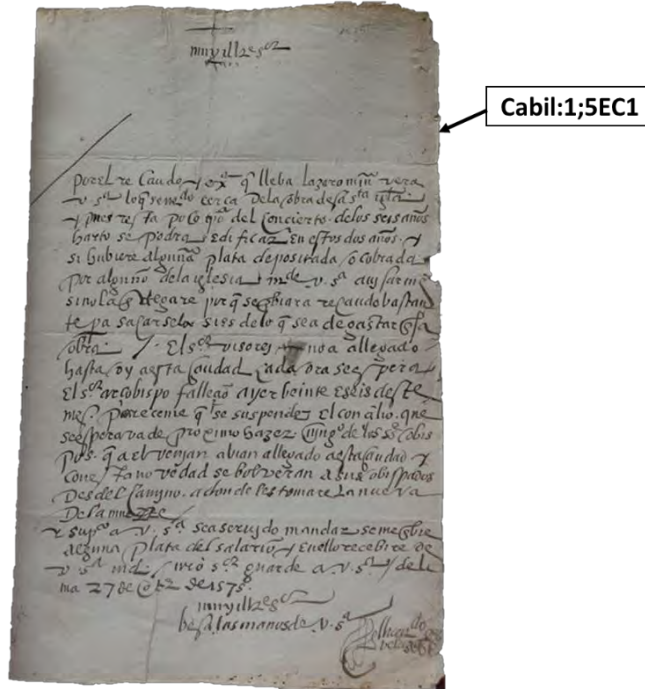 muy ill͂e s͂or
Cabil:1;5EC1
por el recaudo q͂ lleba lazaro min͂ vera
v. s͂a lo q͂ se cerca de la obra desa s͂ta igl͂ia
y pues resta poco t͂po del concierto de los seis años
harto se podra edificar en estos dos años. y
si hubiere alguna plata depositada o cobrada
por alguno de la iglesia m͂de v. s͂a auisarme
si no la q͂ por q͂ se enbiara recaudo bastan
te pa sacarsela si es de lo q͂ sea de gastar en la
obra. / El s͂or visorey no a allegado
hasta oy a esta ciudad cada ora se espera
El s͂or arcobispo fallescio ayer beinte e seis deste
mes. pareceme q͂ se suspendera el concilio que
se esperava de proximo hazer ning͂o de los s͂es obis
pos q͂ a el venian abian allegado a esta ciudad y
con esta novedad se bolveran a sus obispados
desdel camino a donde les tomare la nueva
de la muerte
y sup͂co a v. s͂a sea seruido mandar se me enbie
alguna plata del salario y en ello recebire de
v. s͂a m͂d. n͂ro s͂or guarde a v. s͂a / de li
ma 27 de de 1575
muy ill͂e s͂or
besa las manos de v. s͂a